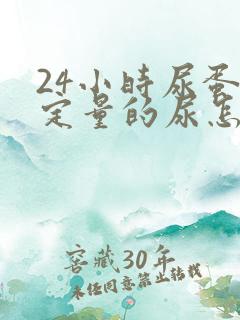 24小时尿蛋
定量的尿怎
窖藏30年
未经同意禁止转载